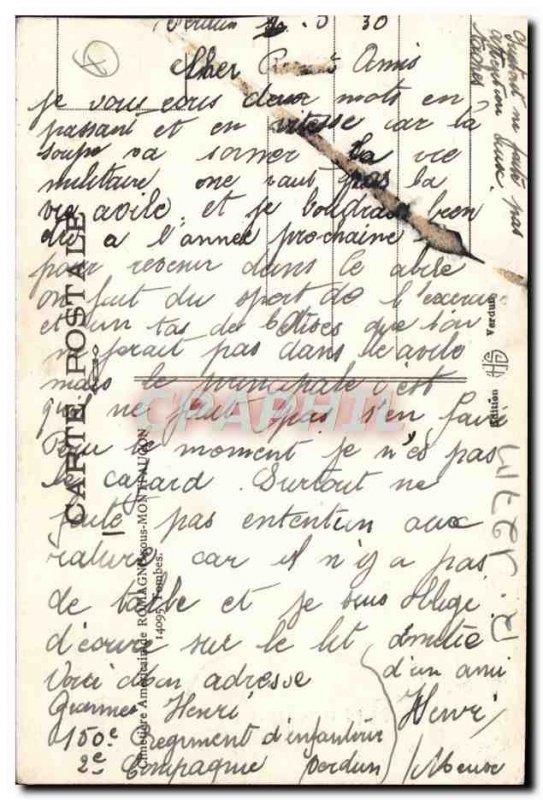 Verdun 30
Cher Amis
je vous eous deux mots en
passant et en vitesse car la
soupe va sonner la vie
militaire ne vaut pas la
vie avile et je boudrais bien
a l'année prochaine
pour revenir dans le
on fait du sport de l'
et un tas de betises que l'on
ne ferait pas dans le
mais le principale c'est
qui ne faut pas s'en faire
Pour le moment je n'es pas
le cafard. Surtout ne
faite pas entention aux
rature car il n'y a pas
de table et je sus oblige
d'ecrire sur le lit Amitie
Voici mon adresse d'un ami
Henri Henri
150e Regiment d'infanterie
2e Compagnie Verdun Meuse
Surtout ne faite pas
attention aux
taches
CARTE POSTALE
Cimetière Américain de ROMAGNE-sous-MONTFAUCON
14095 Tombes.
Edition Verdun
CPARPHIL